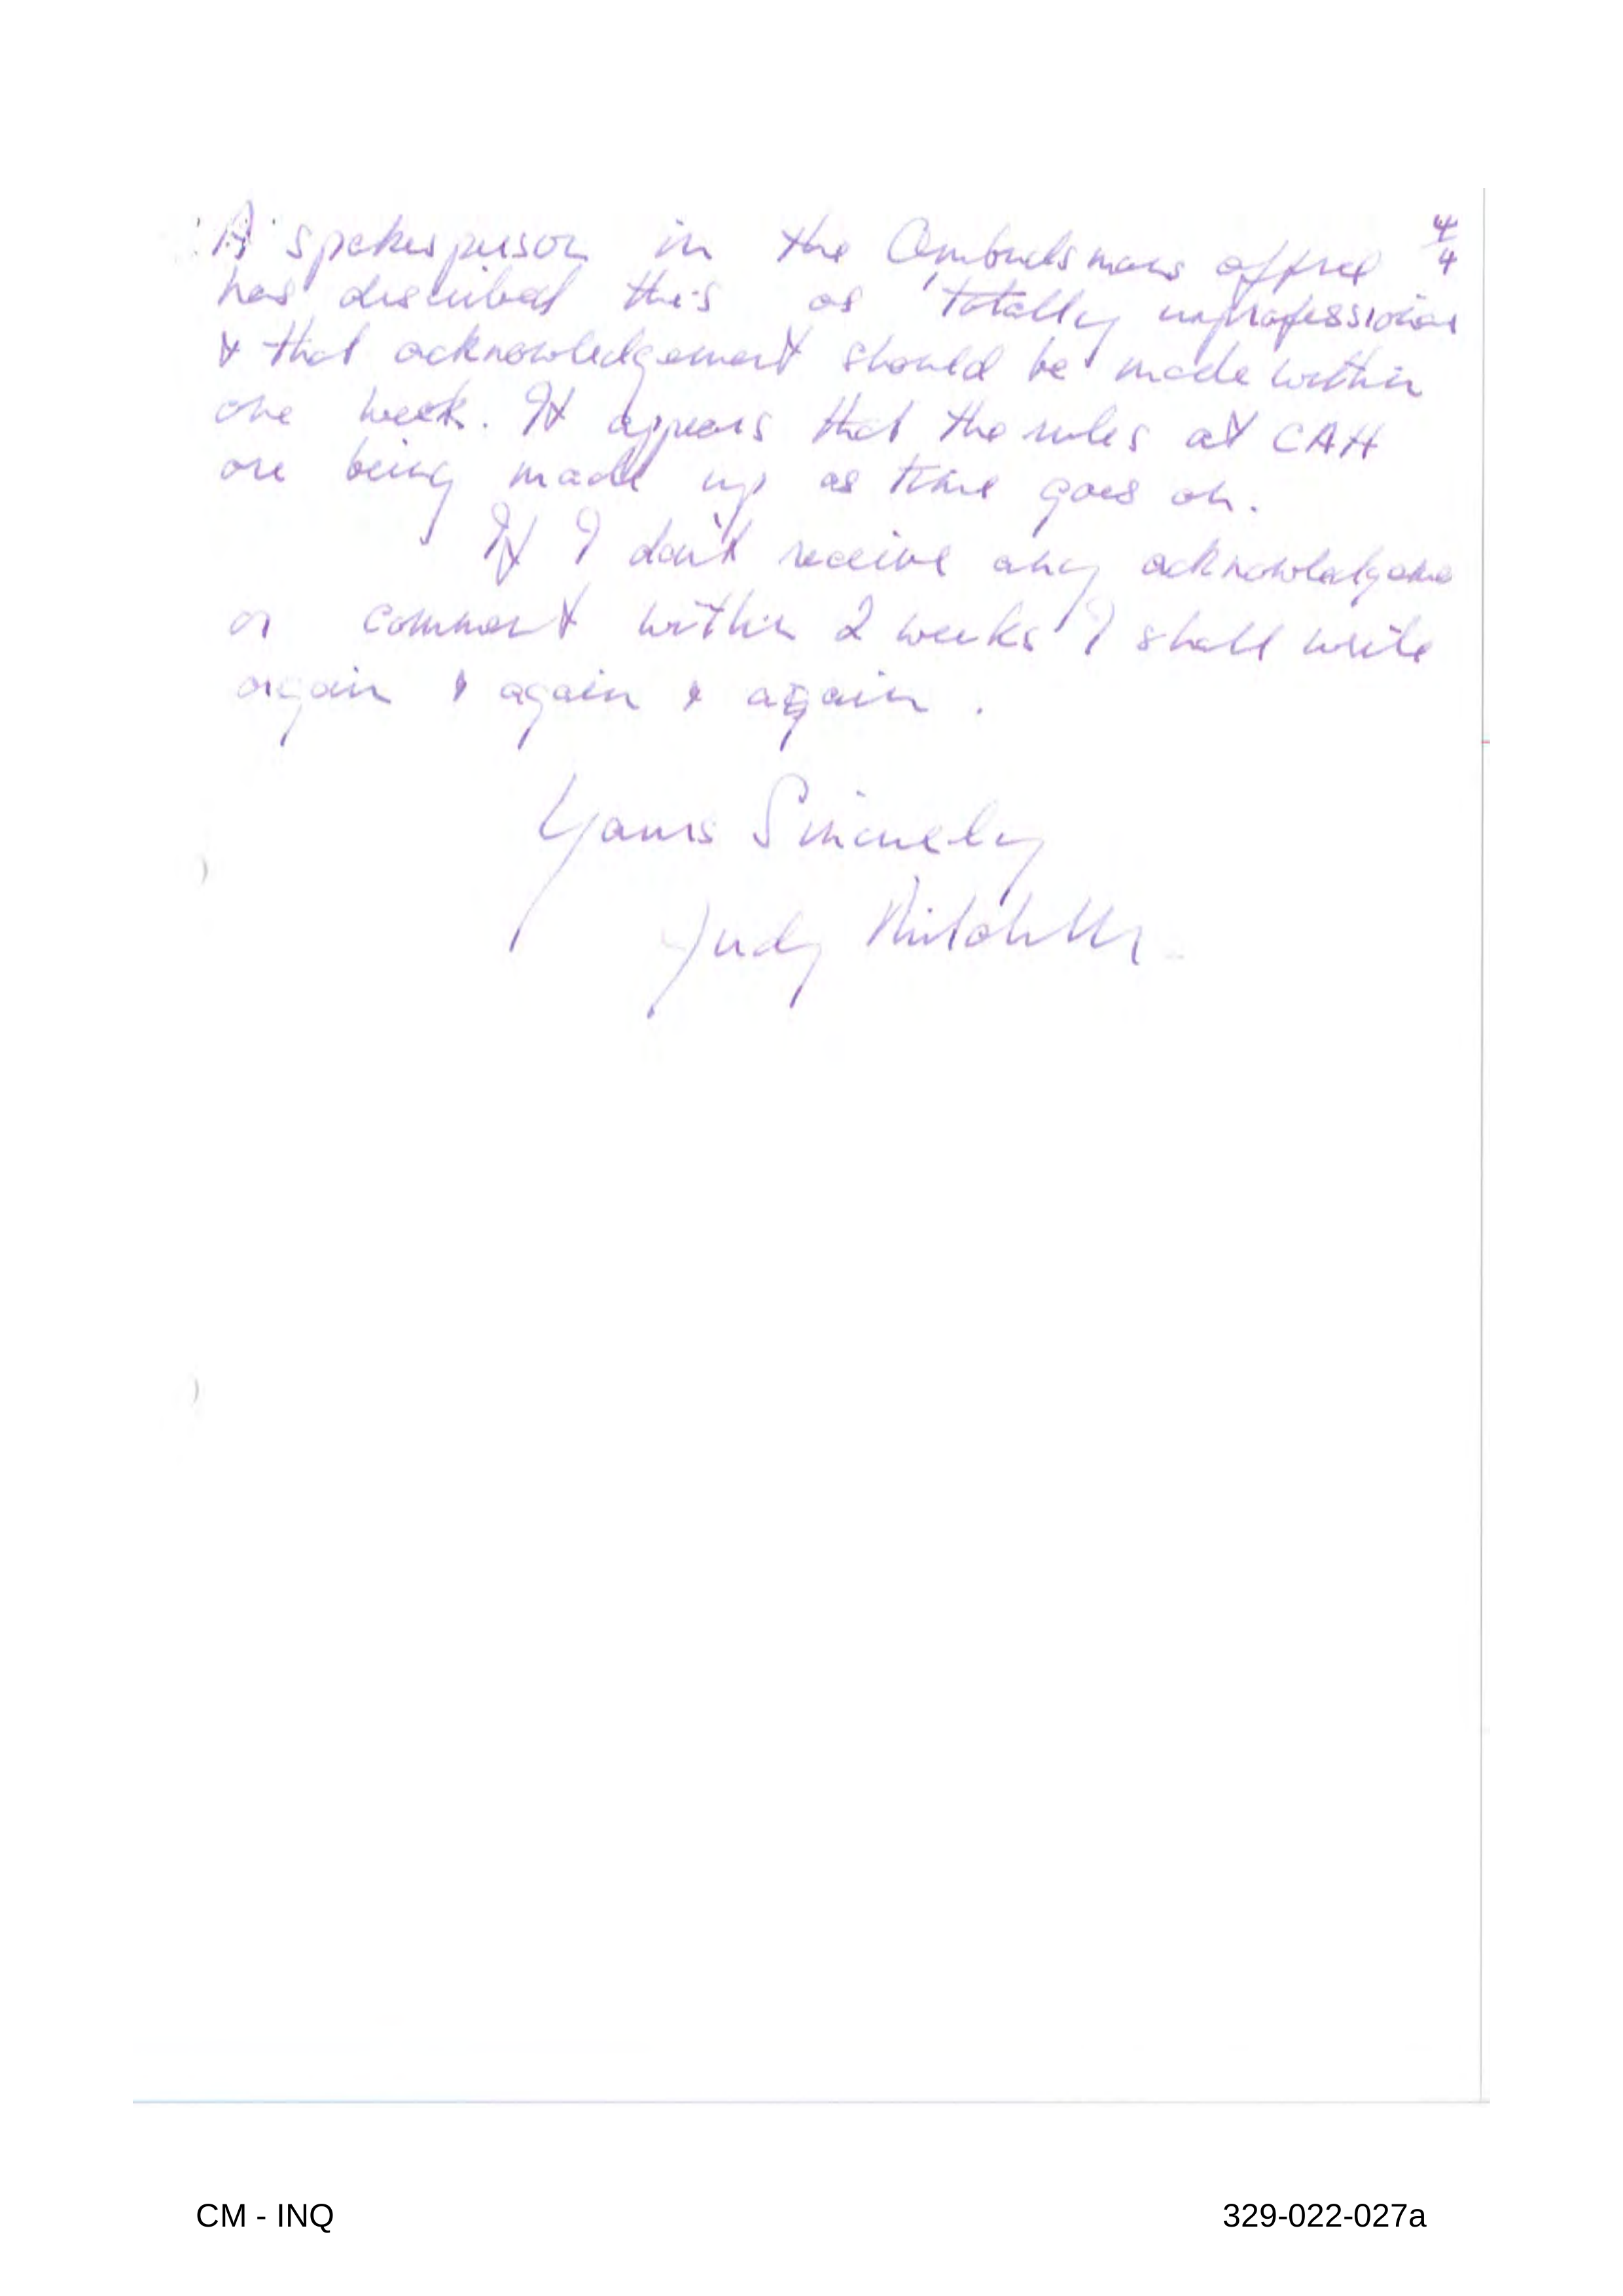 A spokesperson in the Ombudsmans office 4/4
has described this as 'totally unprofessional
& that acknowledgement should be made within
one week. It appears that the rules at CAH
are being made up as time goes on.
If I don't receive any acknowledgeme
or comment within 2 weeks I shall write
again & again & again .
Yours Sincerely
Judy Mitchell.
CM - INQ 329-022-027a